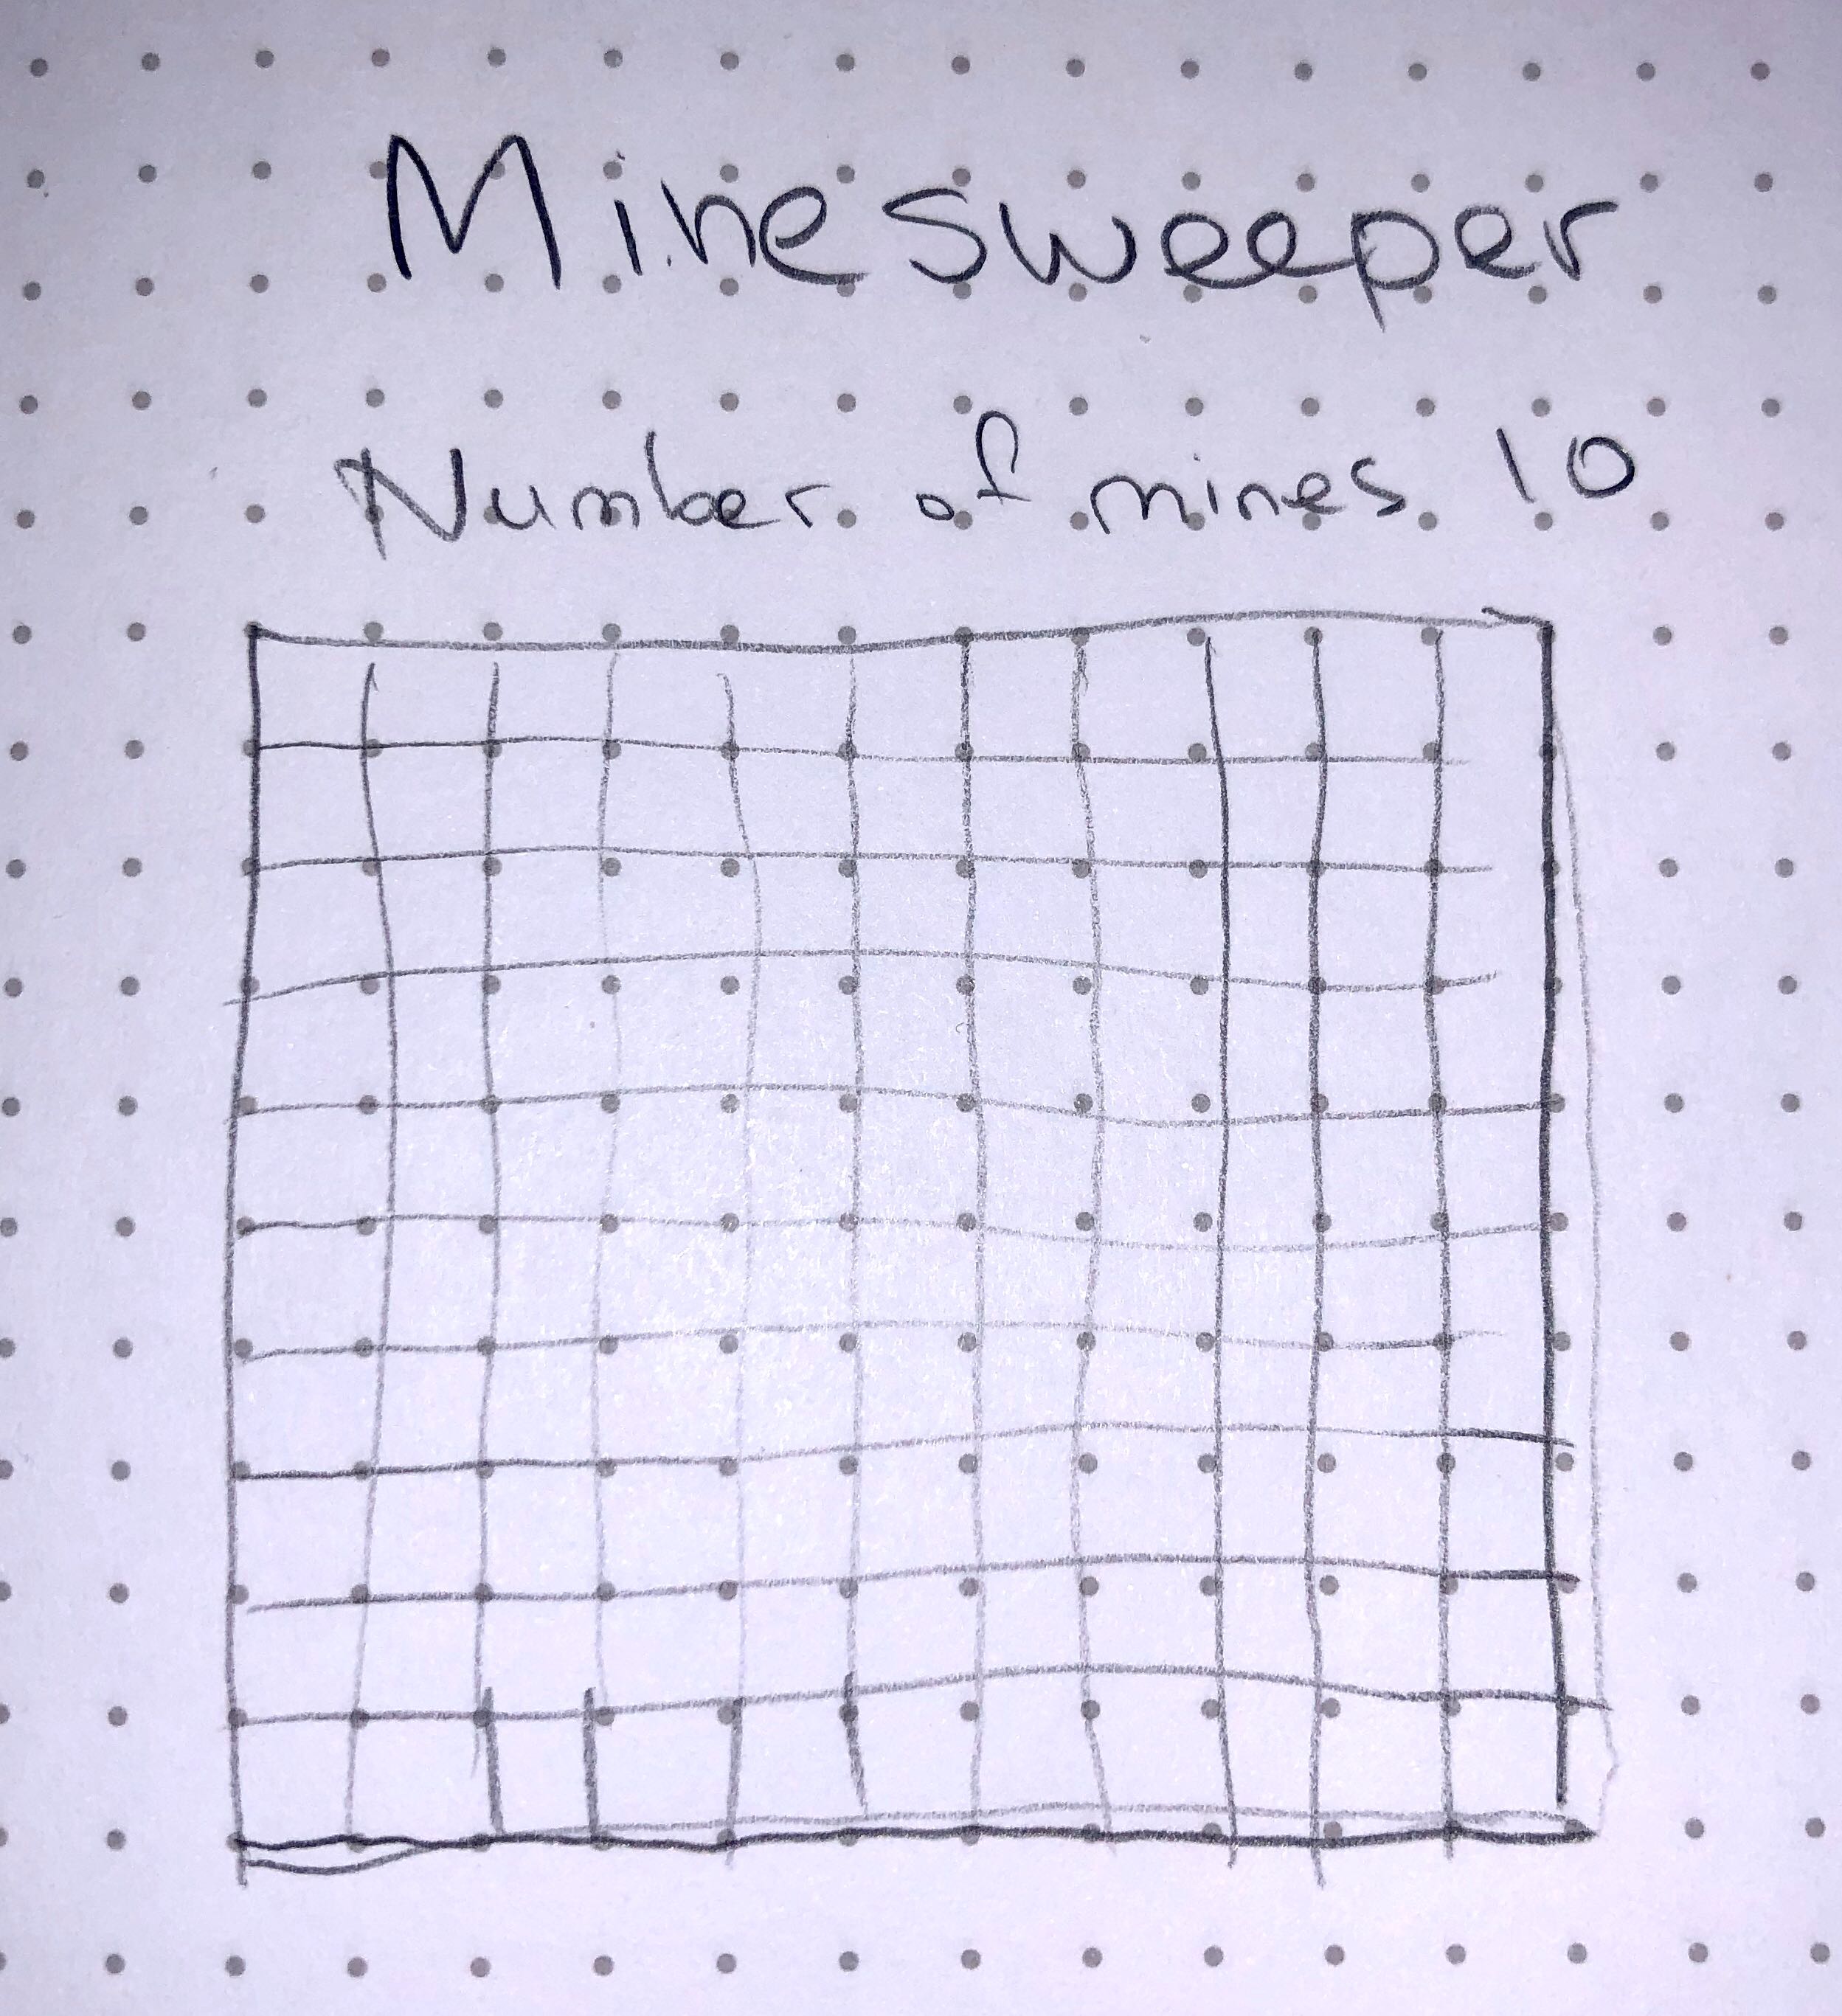 Minesweeper
Number of mines 10